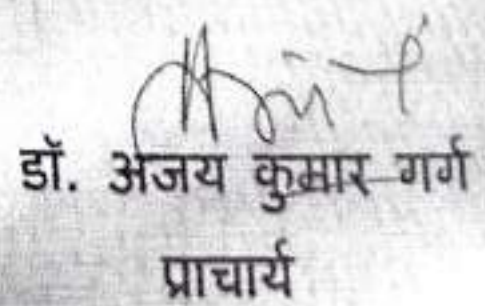 डॉ. अजय कुमार गर्ग
प्राचार्य